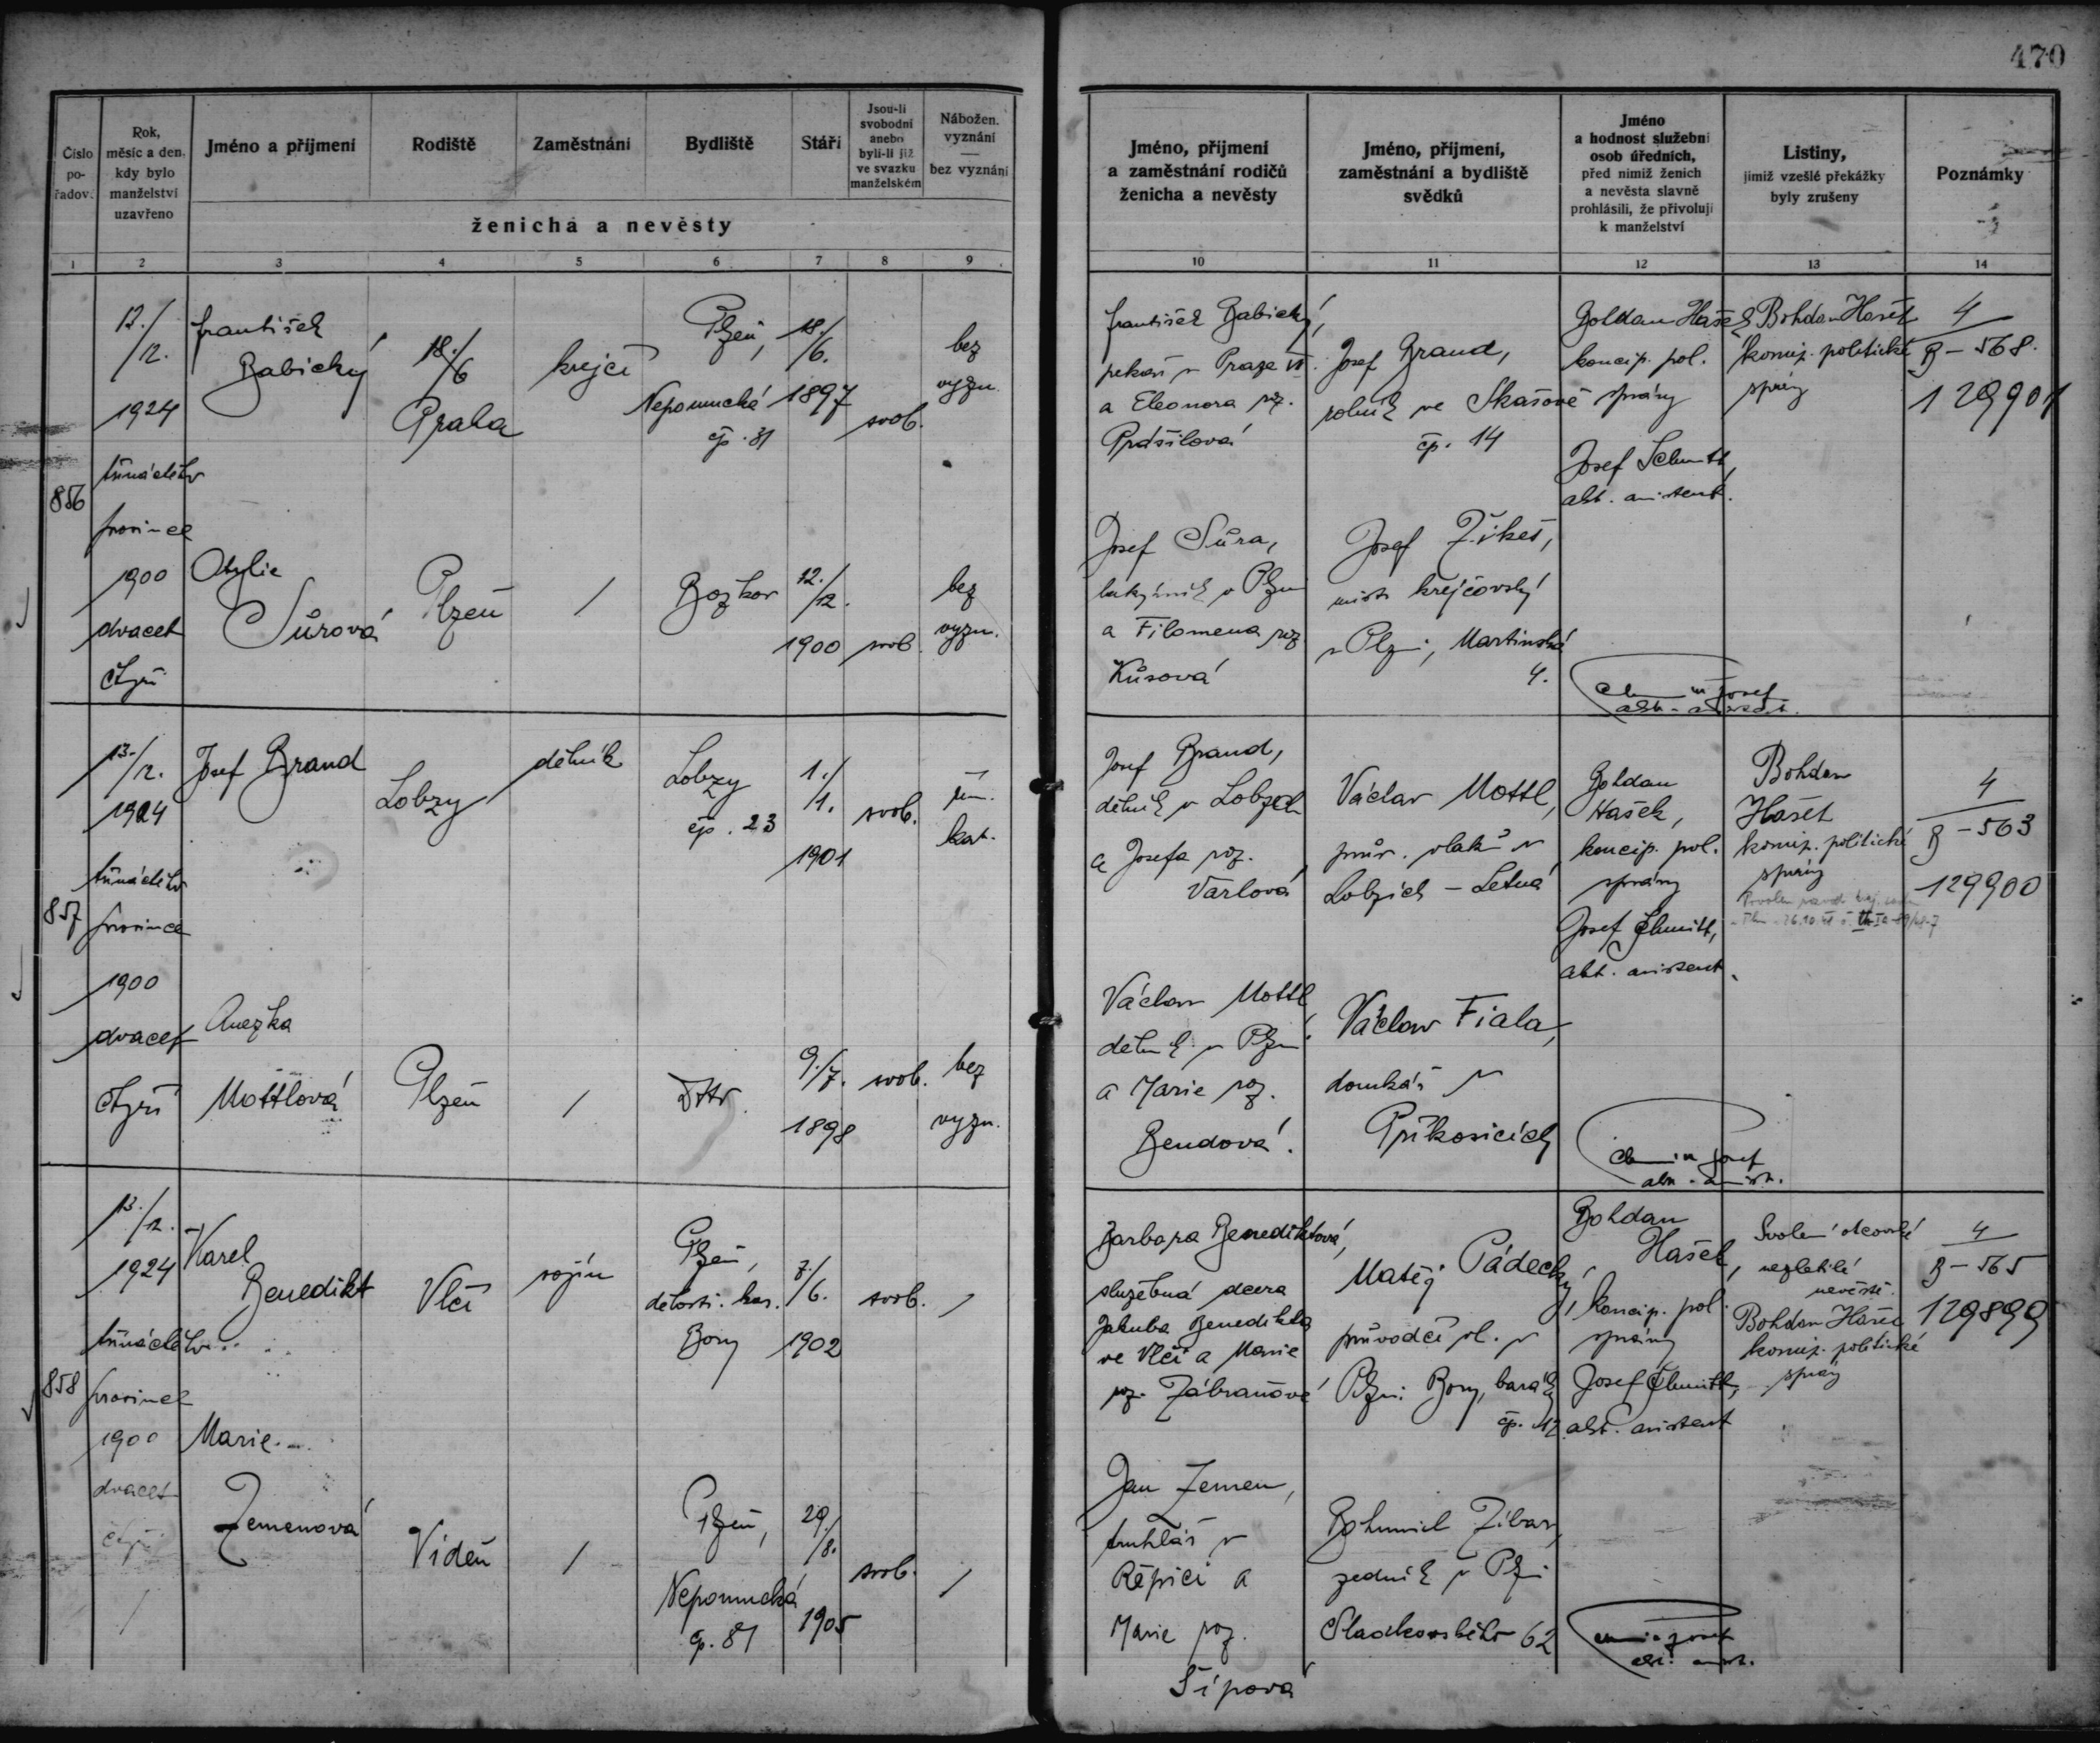 470
Číslo
po-
řadov.
Rok,
měsíc a den,
kdy bylo
manželství
uzavřeno
Jméno a příjmení
Rodiště
Zaměstnání
Bydliště
Stáří
Jsou-li
svobodni
anebo
byli-li již
ve svazku
manželském
Nábožen.
vyznání
bez vyznání
ženicha a nevěsty
Jméno, příjmení
a zaměstnání rodičů
ženicha a nevěsty
Jméno, příjmení,
zaměstnání a bydliště
svědků
Jméno
a hodnost služební
osob úředních,
před nimiž ženich
a nevěsta slavně
prohlásili, že přivolují
k manželství
Listiny,
jimiž vzešlé překážky
byly zrušeny
Poznámky
1 2 3 4 5 6 7 8 9 10 11 12 13 14
856
1924
třináctého
prosince
1900
dvacet
čtyři
František
Babický
18./6
Praha
krejčí
Plzeň,
Nepomucká
čp. 81
18./
6.
1897
svob.
bez
vyzn.
František Babický,
pekař v Praze VII.
a Eleonora roz.
Prášilová
Josef Brand,
rolník ve Skašově
čp. 14
Bohdan Hašek
koncip. pol.
správy
Josef Schmitt,
akt. asistent.
Bohdan Hašek
komis. politické
správy
4
B – 568.
129901
Otylie
Sůrová
Plzeň
/
Božkov
12./
12.
1900
svob.
bez
vyzn.
Josef Sůra,
v Plzni
a Filomena roz.
Kůsová
Josef Žikeš,
mistr krejčovský
v Plzni, Martinská
4.
857
13./
12.
1924
třináctého
prosince
1900
dvacet
čtyři
Josef Brand
Lobzy
dělník
Lobzy
čp. 23
1./
1.
1901
svob.
řím.
kat.
Josef Brand,
dělník v Lobzích
a Josefa roz.
Varlová
Václav Mottl,
prův. vlaků v
Lobzích – Letná
Bohdan
Hašek,
koncip. pol.
správy
Josef Schmitt,
akt. asistent.
Bohdan
Hašek
komis. politické
správy
4
B – 563
129900
Anežka
Mottlová
Plzeň
/
Dtto
9./7.
1898
svob.
bez
vyzn.
Václav Mottl
dělník v Plzni
a Marie roz.
Bendová.
Václav Fiala,
domkář v
Příkosicích
858
13./
12.
1924
třináctého
prosince
1900
dvacet
čtyři
/
Karel
Benedikt
Vlčí
vojín
Plzeň,
dělostř. kas.
Bory
7./
6.
1902
svob.
/
Barbora Benediktová,
služebná dcera
Jakuba Benedikta
ve Vlčí a Marie
roz. Zábranové
Matěj Pádecký,
průvodčí vl. v
Plzni: Bory, barák
čp. 12
Bohdan
Hašek,
koncip. pol.
správy
Josef Schmitt,
akt. asistent
Svolení otcovské
nezletilé
nevěstě.
Bohdan Hašek
komis. politické
správy
4
B – 565
129899
Marie
Zemenová
Vídeň
/
Plzeň,
Nepomucká
čp. 81
29./
8.
1905
svob.
/
Jan Zemen,
truhlář v
Řepici a
Marie roz.
Šípová
Bohumil Zíbar,
zedník v Plzni
Sladkovského 62